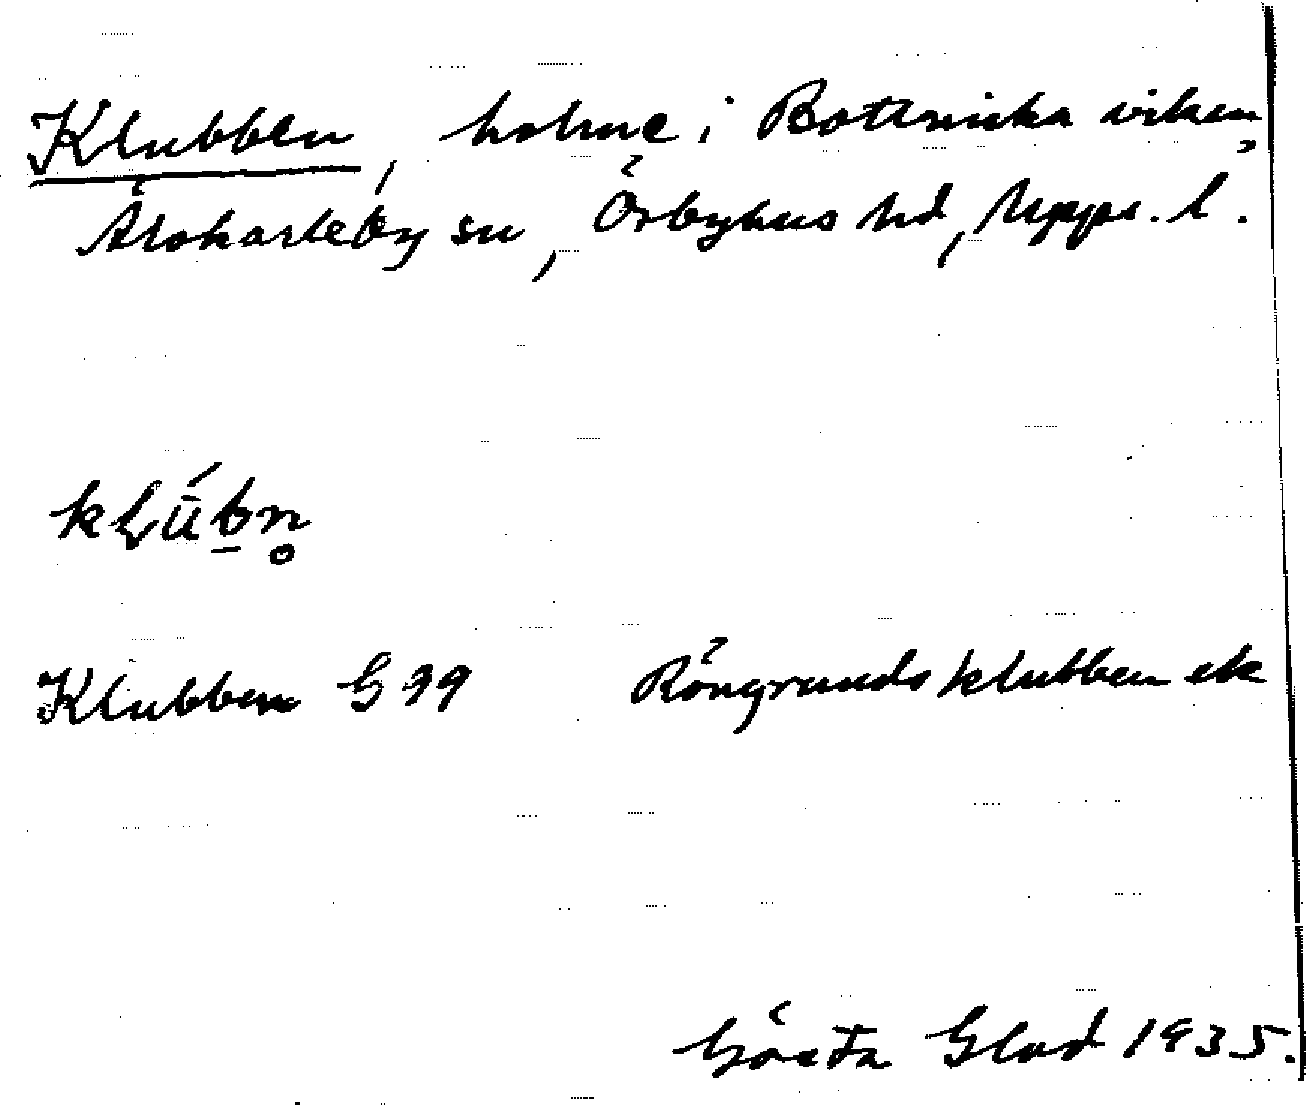 Klubben, holme i Bottniska viken,
Älvkarleby sn, Örbyhus hd, Upps. l.
Klubben G 99 Röngrundsklubben ek
Gösta Glad 1935.